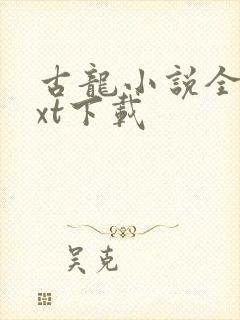 古龍小説全
xt下載
吴克